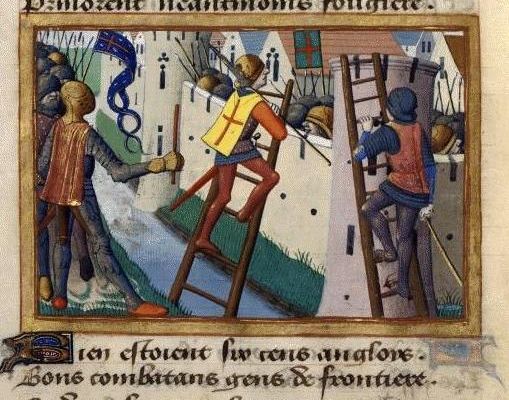 Prindrent neantmoins fougiere.
Bien estoient six cens anglois.
Bons combatans gens de frontiere.